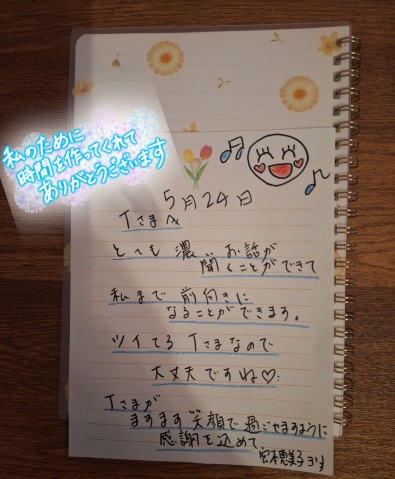 私のために
時間を作ってくれて
ありがとうございます
5月24日
Tさまへ
とても濃いお話が
聞くことができて
私まで前向きに
なることができます。
ツイてるTさまなので
大丈夫ですね♡
Tさまが
ますます笑顔で過ごせますように
感謝を込めて、
恵美子より